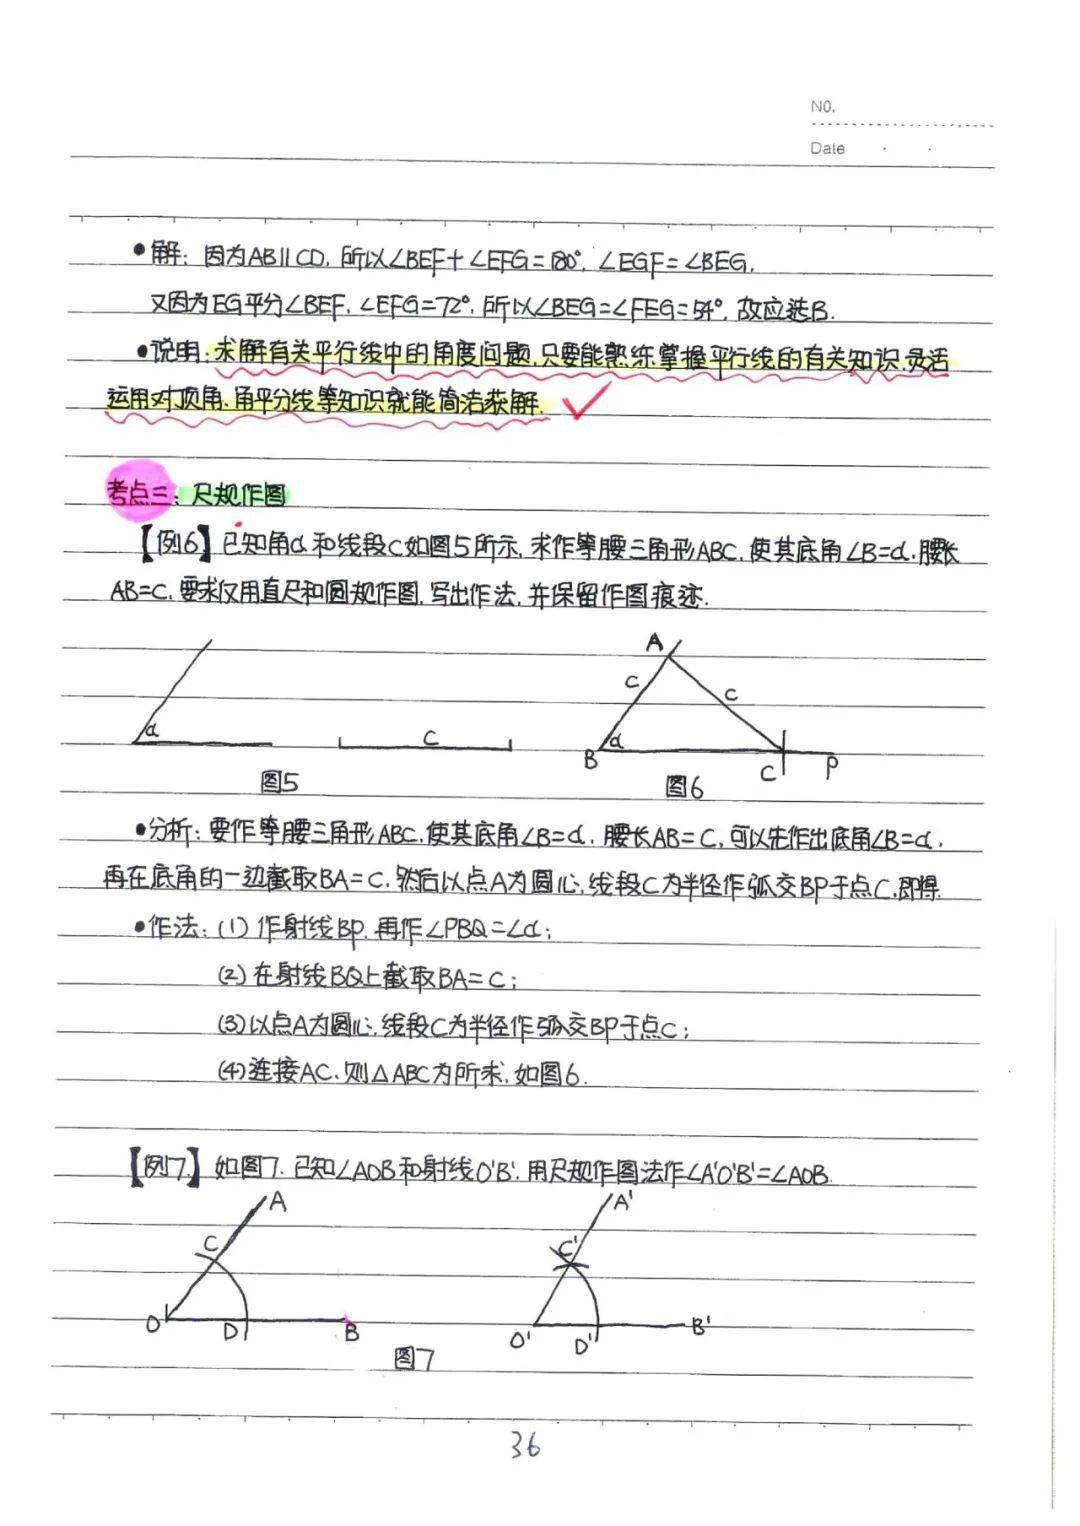 NO.
Date
•解：因为AB∥CD，所以∠BEF+∠EFG=180°，∠EGF=∠BEG，
又因为EG平分∠BEF，∠EFG=72°，所以∠BEG=∠FEG=54°，故应选B.
•说明：求解有关平行线中的角度问题，只要能熟练掌握平行线的有关知识，灵活
运用对顶角、角平分线等知识就能简洁获解.
考点三：尺规作图
【例6】已知角α和线段c如图5所示，求作等腰三角形ABC，使其底角∠B=α，腰长
AB=c，要求仅用直尺和圆规作图，写出作法，并保留作图痕迹.
α
c
图5
A
c
c
α
B
C
P
图6
•分析：要作等腰三角形ABC，使其底角∠B=α，腰长AB=c，可以先作出底角∠B=α，
再在底角的一边截取BA=c，然后以点A为圆心，线段c为半径作弧交BP于点C，即得.
•作法：(1)作射线BP，再作∠PBQ=∠α；
(2)在射线BQ上截取BA=c；
(3)以点A为圆心，线段c为半径作弧交BP于点C；
(4)连接AC，则△ABC为所求，如图6.
【例7】如图7，已知∠AOB和射线O'B'，用尺规作图法作∠A'O'B'=∠AOB.
A
C
O
D
B
A'
C'
O'
D'
B'
图7
36